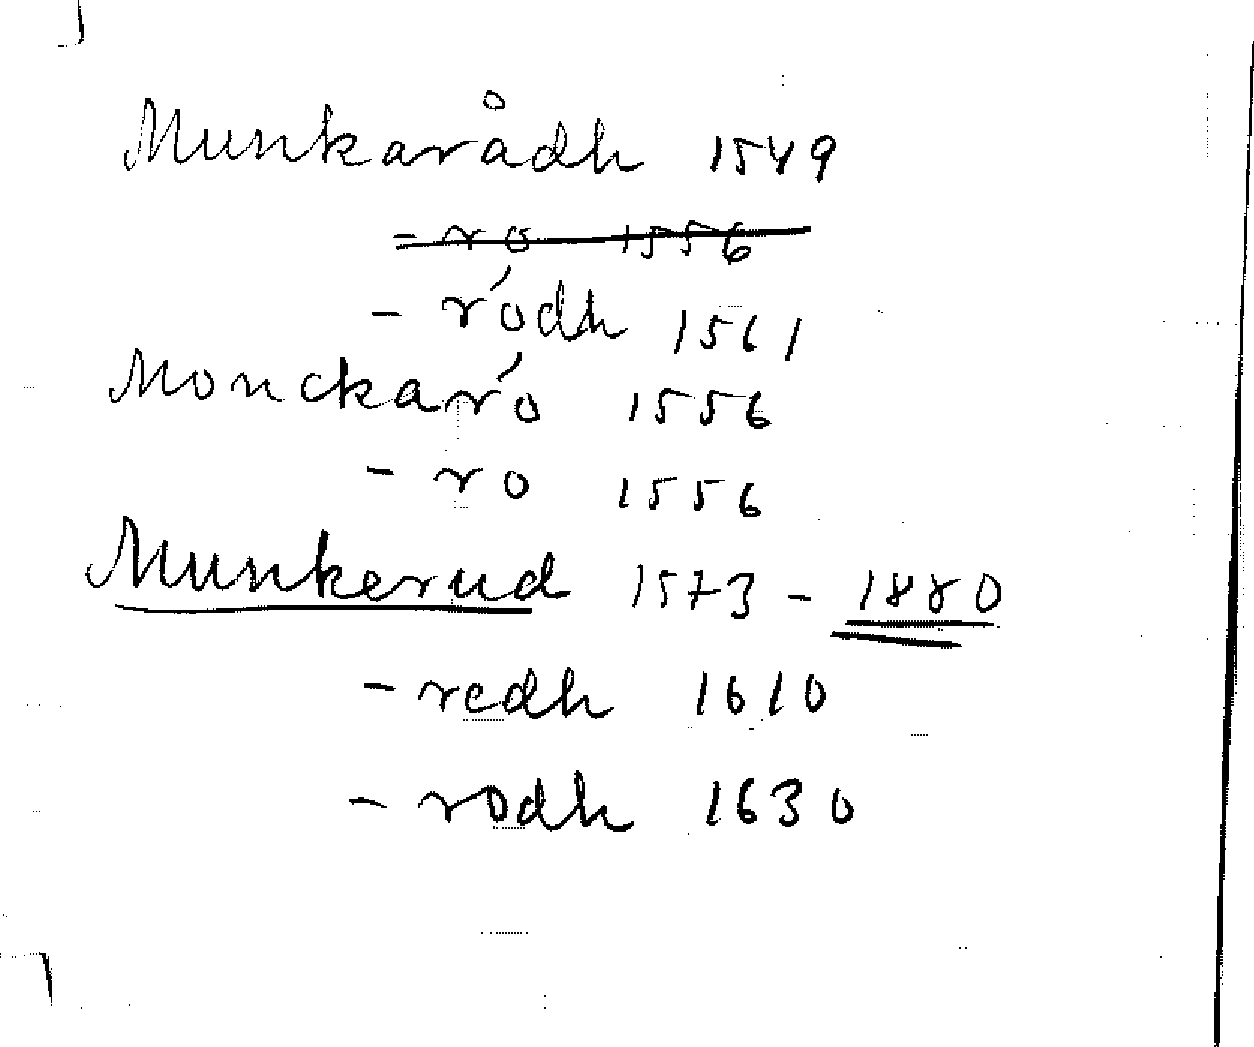 Munkarådh 1549
- ro 1556
- ródh 1561
Monckaró 1556
- ro 1556
Munkerud 1573 - 1880
- redh 1610
- rodh 1630